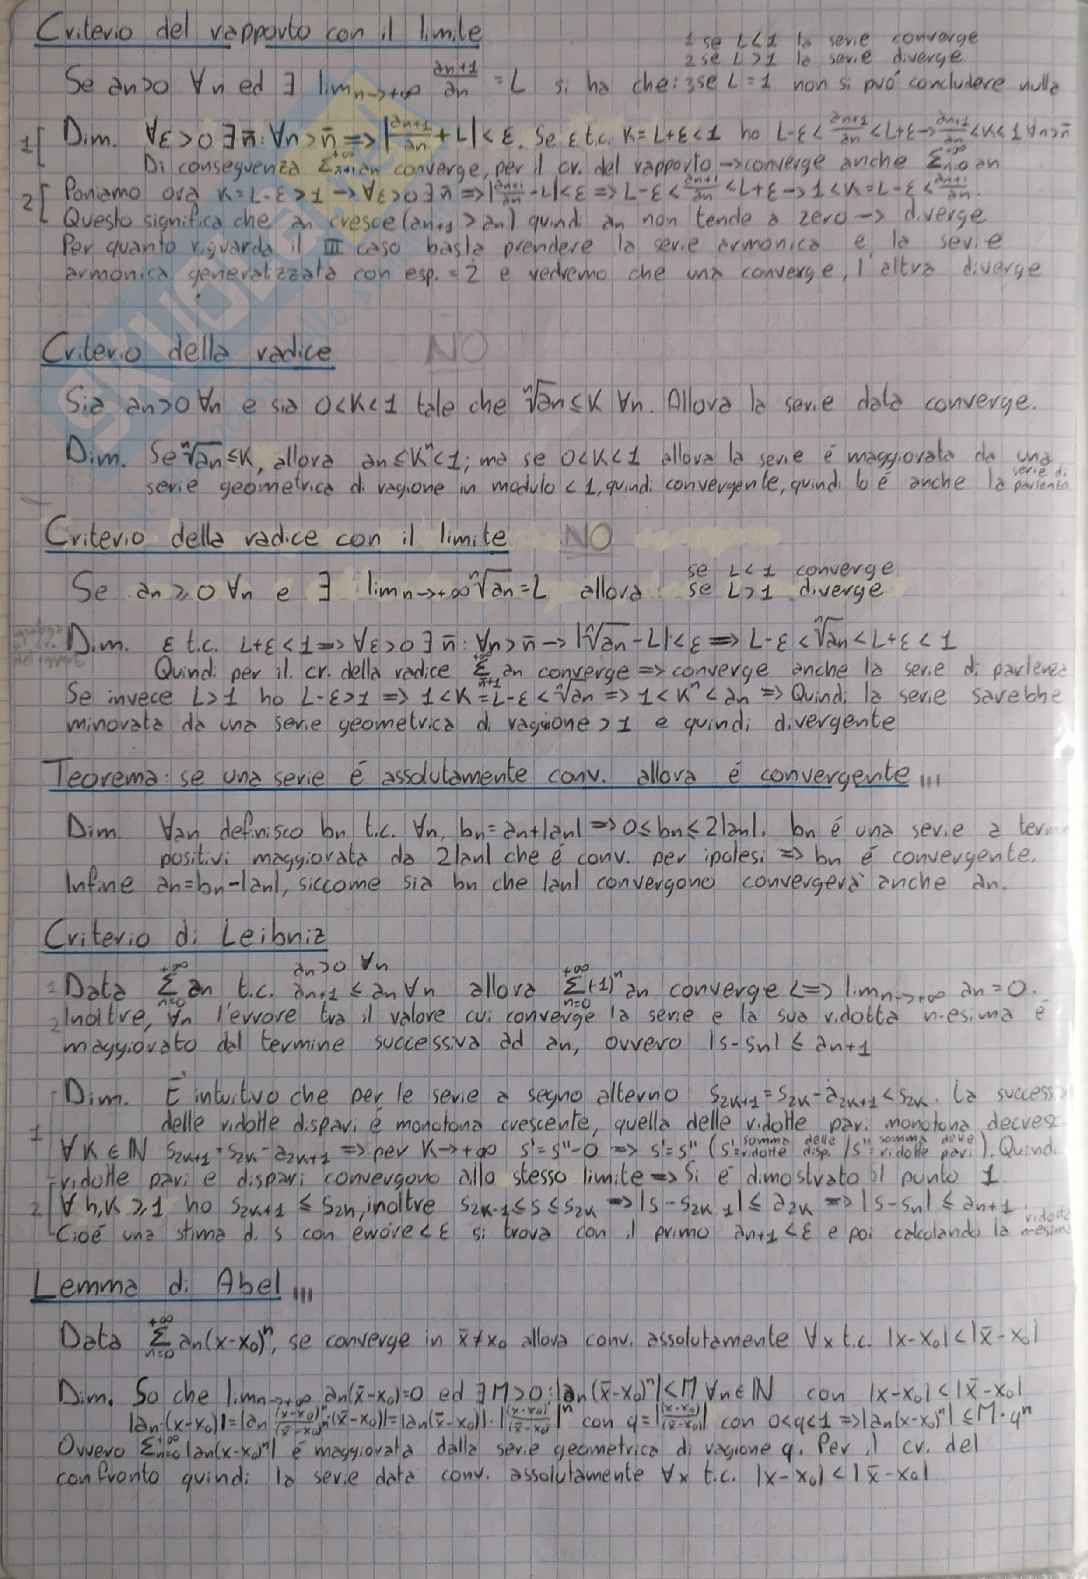 Criterio del rapporto con il limite
1 se L<1 la serie converge
2 se L>1 la serie diverge
Se an>0 ∀n ed ∃ lim n→+∞ an+1/an = L si ha che: 3 se L=1 non si può concludere nulla
1[ Dim. ∀ε>0 ∃n̄: ∀n>n̄ => |an+1/an + L|<ε. Se ε t.c. K=L+ε<1 ho L-ε<an+1/an<L+ε→an+1/an<K<1 ∀n>n̄
Di conseguenza Σ an converge, per il cr. del rapporto →converge anche Σ n=0 +∞ an
2[ Poniamo ora K=L-ε>1 → ∀ε>0 ∃n̄ => |an+1/an -L|<ε => L-ε<an+1/an<L+ε→1<K=L-ε<an+1/an.
Questo significa che an cresce (an+1>an) quindi an non tende a zero → diverge
Per quanto riguarda il III caso basta prendere la serie armonica e la serie
armonica generalizzata con esp.=2 e vedremo che una converge, l'altra diverge
Criterio della radice NO
Sia an>0 ∀n e sia 0<K<1 tale che ⁿ√an≤K ∀n. Allora la serie data converge.
Dim. Se ⁿ√an≤K, allora an≤Kⁿ<1; ma se 0<K<1 allora la serie é maggiorata da una
serie geometrica di ragione in modulo <1, quindi convergente, quindi lo é anche la serie di partenza
Criterio della radice con il limite NO
Se an≥0 ∀n e ∃ lim n→+∞ ⁿ√an=L allora se L<1 converge
se L>1 diverge
Dim. ε t.c. L+ε<1 => ∀ε>0 ∃n̄: ∀n>n̄ → |ⁿ√an-L|<ε => L-ε<ⁿ√an<L+ε<1
Quindi per il cr. della radice Σ an converge => converge anche la serie di partenza
Se invece L>1 ho L-ε>1 => 1<K=L-ε<ⁿ√an => 1<Kⁿ<an => Quindi la serie sarebbe
minorata da una serie geometrica di ragione >1 e quindi divergente
Teorema: se una serie é assolutamente conv. allora é convergente !!!
Dim. ∀an definisco bn t.c. ∀n, bn=an+|an| => 0≤bn≤2|an|. bn é una serie a term
positivi maggiorata da 2|an| che é conv. per ipotesi => bn é convergente.
Infine an=bn-|an|, siccome sia bn che |an| convergono convergerà anche an.
Criterio di Leibniz
an>0 ∀n
1 Data Σ n=0 +∞ an t.c. an+1≤an ∀n allora Σ n=0 +∞ (-1)ⁿ an converge <=> lim n→+∞ an=0.
2 Inoltre, ∀n l'errore tra il valore cui converge la serie e la sua ridotta n-esima é
maggiorato dal termine successiva ad an, ovvero |s-sn|≤an+1
Dim. E' intuitivo che per le serie a segno alterno s2K+1=s2K-a2K+1<s2K. La success
1 delle ridotte dispari é monotona crescente, quella delle ridotte pari monotona decresc
∀K∈ℕ s2K+1=s2K-a2K+1 => per K→+∞ s'=s''-0 => s'=s'' (s'=somma delle ridotte disp. / s''=somma delle ridotte pari). Quindi
ridotte pari e dispari convergono allo stesso limite => Si é dimostrato il punto 1.
2[ ∀h,K≥1 ho s2K+1≤s2h, inoltre s2K-1≤s≤s2K => |s-s2K-1|≤a2K => |s-sn|≤an+1.
Cioé una stima di s con errore<ε si trova con il primo an+1<ε e poi calcolando la ridotta n-esima
Lemma di Abel !!!
Data Σ n=0 +∞ an(x-x0)ⁿ, se converge in x̄≠x0 allora conv. assolutamente ∀x t.c. |x-x0|<|x̄-x0|
Dim. So che lim n→+∞ an(x̄-x0)=0 ed ∃M>0:|an(x̄-x0)ⁿ|≤M ∀n∈ℕ con |x-x0|<|x̄-x0|
|an·(x-x0)|=|an (x-x0)ⁿ/(x̄-x0)ⁿ·(x̄-x0)|=|an(x̄-x0)|·|(x-x0)/(x̄-x0)|ⁿ con q=|(x-x0)/(x̄-x0)| con 0<q<1 => |an(x-x0)ⁿ|≤M·qⁿ
Ovvero Σ n=0 +∞ |an(x-x0)ⁿ| é maggiorata dalla serie geometrica di ragione q. Per il cr. del
confronto quindi la serie data conv. assolutamente ∀x t.c. |x-x0|<|x̄-x0|